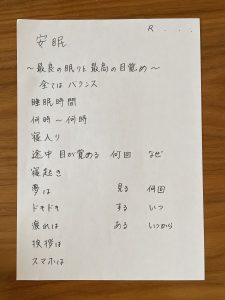 R . . .
安眠
～最良の眠りと最高の目覚め～
全ては バランス
睡眠時間
何時～何時
寝入り
途中 目が覚める 何回 なぜ
寝起き
夢は 見る 何回
ドキドキ する いつ
疲れは ある いつから
挨拶は
スマホは